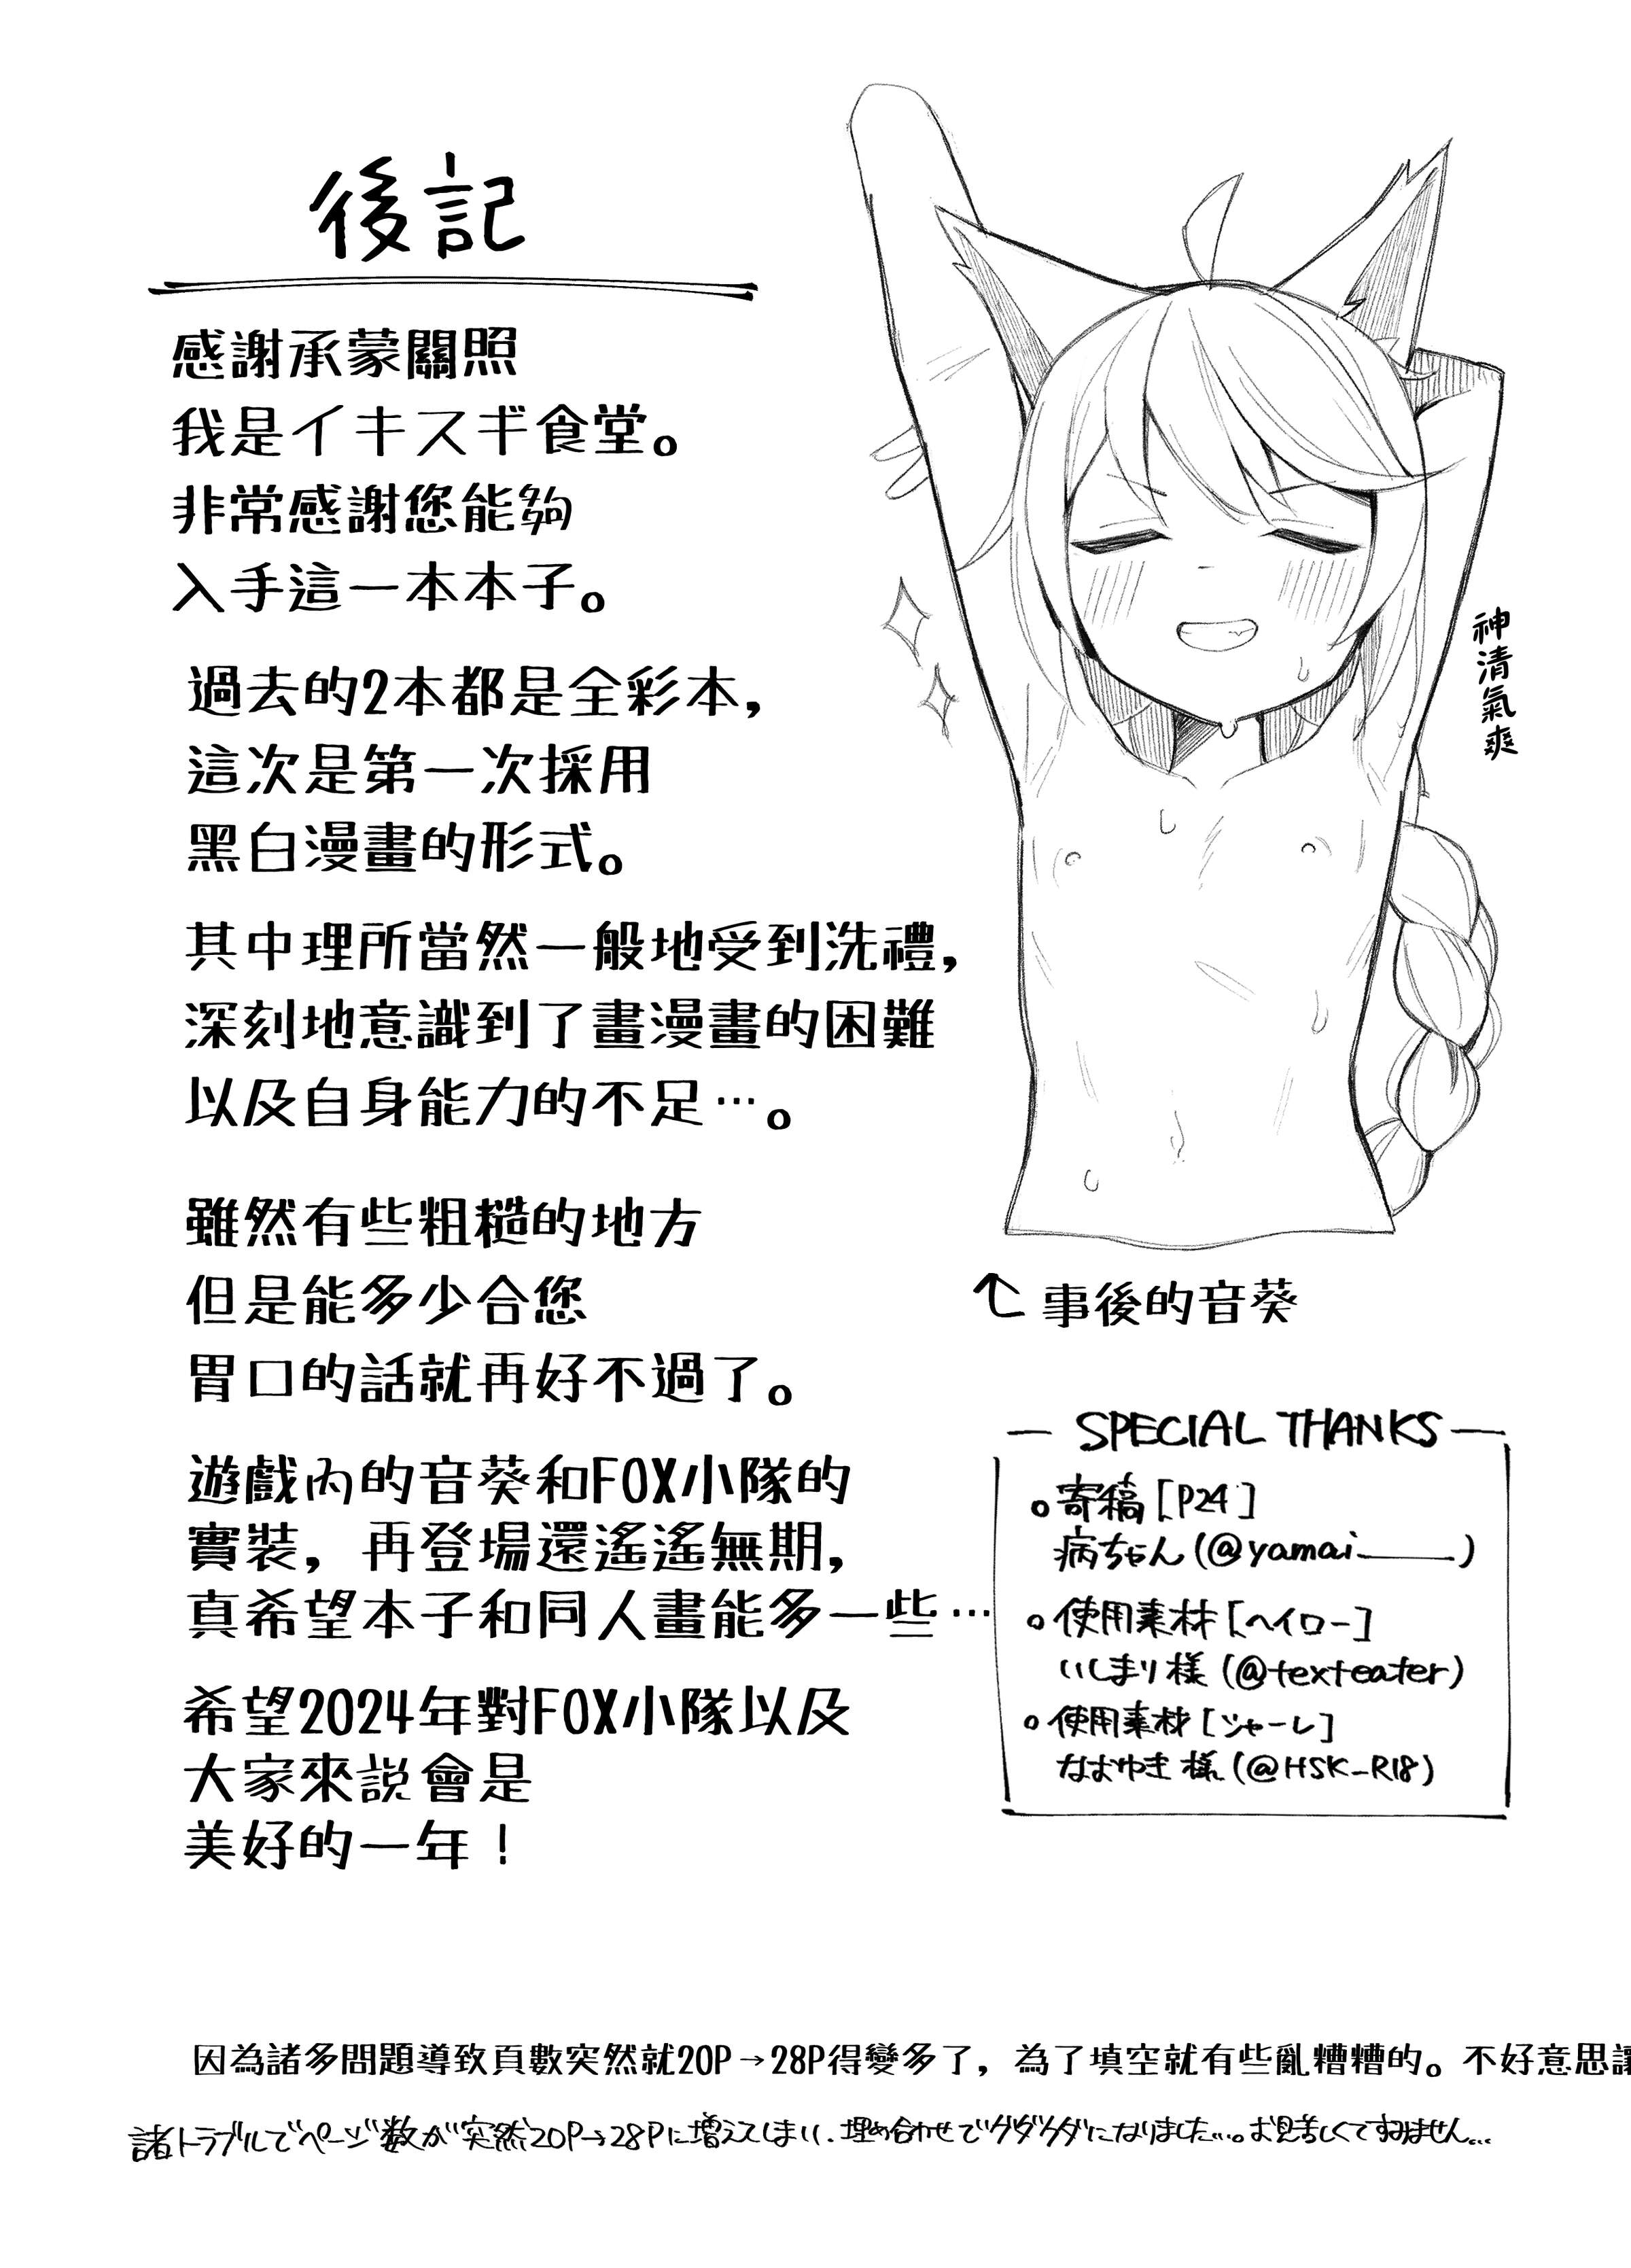 後記
感謝承蒙關照
我是イキスギ食堂。
非常感謝您能夠
入手這一本本子。
過去的2本都是全彩本，
這次是第一次採用
黑白漫畫的形式。
其中理所當然一般地受到洗禮，
深刻地意識到了畫漫畫的困難
以及自身能力的不足…。
雖然有些粗糙的地方
但是能多少合您
胃口的話就再好不過了。
遊戲內的音葵和FOX小隊的
實裝，再登場還遙遙無期，
真希望本子和同人畫能多一些…
希望2024年對FOX小隊以及
大家來説會是
美好的一年！
神清氣爽
事後的音葵
SPECIAL THANKS
。寄稿［P24］
病ちゃん（@yamai＿＿＿）
。使用素材［ヘイロー］
いしまり様（@texteater）
。使用素材［シャーレ］
なおゆき様（@HSK_R18）
因為諸多問題導致頁數突然就20P→28P得變多了，為了填空就有些亂糟糟的。不好意思讓
諸トラブルでページ数が突然20P→28Pに増えてしまい、埋め合わせでグダグダになりました…。お見苦しくてすみません…